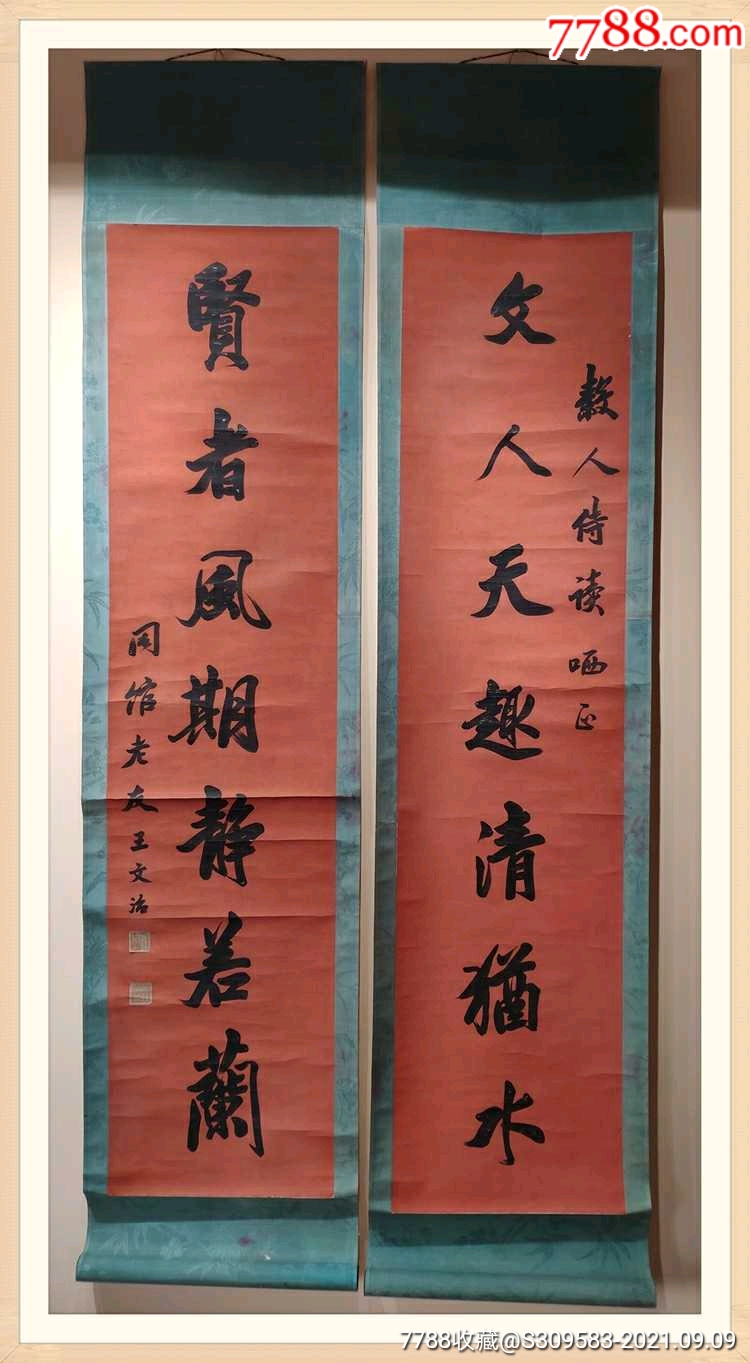 7788.com
文人天趣清猶水
穀人侍读哂正
賢者風期静若蘭
同館老友王文治
7788收藏@S309583-2021.09.09